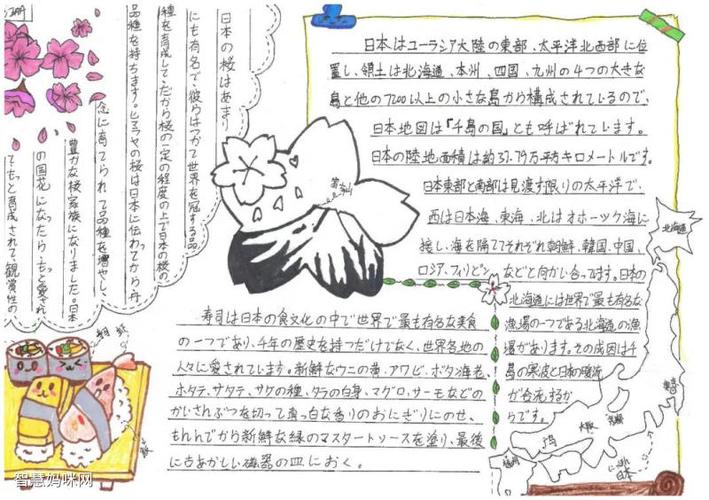 日本はユーラシア大陸の東部、太平洋北西部に位
置し、領土は北海道、本州、四国、九州の4つの大きな
島と他の7200以上の小さな島から構成されているので、
日本地図は「千島の国」とも呼ばれています。
日本の陸地面積は約37.79万平方キロメートルです。
日本東部と南部は見渡す限りの太平洋で、
西は日本海、東海、北はオホーツク海に
接し、海を隔ててそれぞれ朝鮮、韓国、中国、
ロシア、フィリピンなどと向かい合ってます。日本の
北海道には世界で最も有名な
漁場の一つである北海道の漁
場があります。その成因は千
島の寒波と日本の暖流
が合流するか
らです。
北海道
東京
大阪
福岡
日本
日本の桜はあまり
にも有名で、彼らはかつて世界を冠する品
種を育成して、だから桜の一定の程度の上で日本の桜の
品種を持ちます。ヒマラヤの桜は日本に伝わってから、丹
念に育てられて品種を増やし、
豊かな桜家族になりました。日本
の国花になったら、もっと愛され
て、もっと育成されて、観賞性の
寿司は日本の食文化の中で世界で最も有名な美食
の一つであり、千年の歴史を持つだけでなく、世界各地の
人々に愛されています。新鮮なウニの黄、アワビ、ボタン海老、
ホタテ、サケの種、タラの白身、マグロ、サーモなどの
かいさんぶつを切って真っ白な香りのおにぎりにのせ、
もんでから新鮮な緑のマスタートソースを塗り、最後
に古めかしい磁器の皿におく。
智慧妈咪网